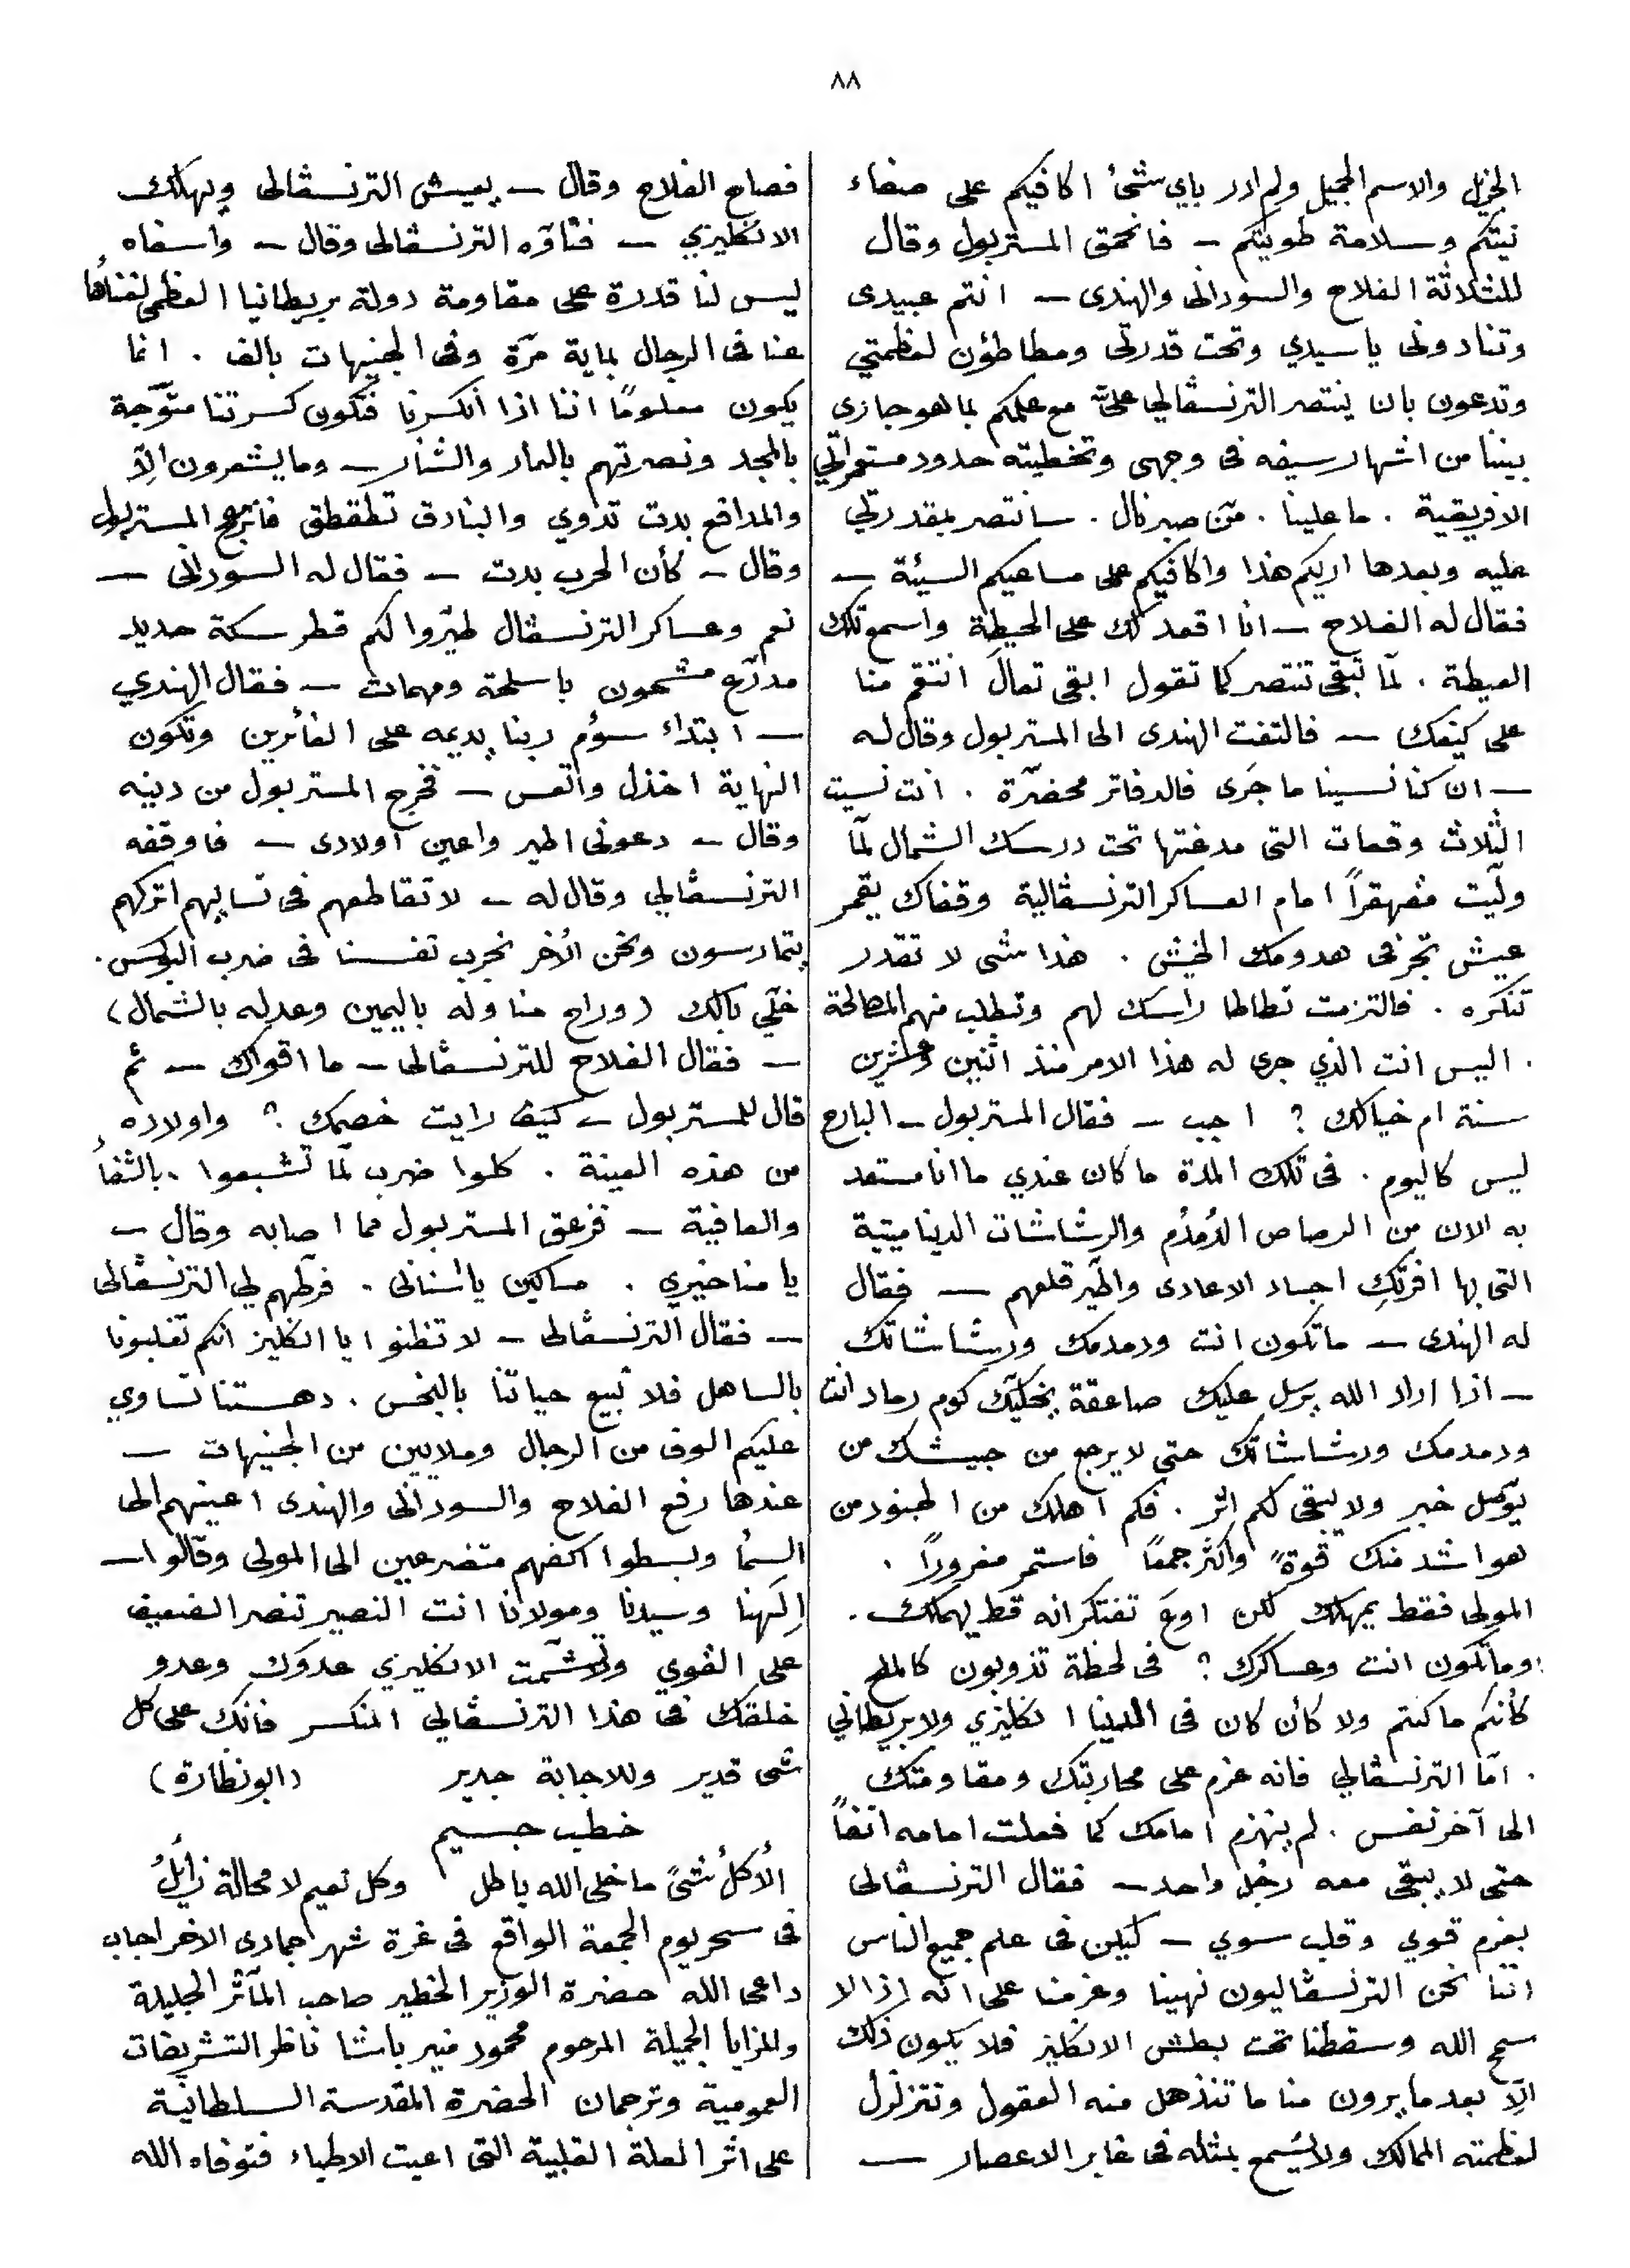 ٨٨
الجزيل والاسم الجميل ولم ادر باي شئ اكافيكم على صفاء
نيتكم وسلامة طويتكم – فانحمق المستربول وقال
للثلاثة الفلاح والسودانى والهندى – انتم عبيدى
وتنادونى ياسيدي وتحت قدرتى ومطاطؤن لعظمتي
وتدعون بان ينتصر الترنسڤالي علىَّ مع علمكم بما هو جازى
بيننا من اشهار سيفه فى وجهى وتخطيته حدود مستعمراتي
الافريقية . ما علينا . مَن صبر نال . سانتصر بمقدرتي
عليه وبعدها اريكم هذا واكافيكم على مساعيكم السيئة –
فقال له الفلاح – انا اقعد لك على الحيطة واسمع تلك
العيطة . لمّا تبقى تنتصر كما تقول ابقى تعالَ انتقم منا
على كيفك – فالتفت الهندى الى المستربول وقال له
– ان كنا نسينا ما جَرى فالدفاتر محضرّة . انت نسيت
الثلاث وقعات التى مدغتها تحت درسك الشمال لمّا
ولّيت مقهقراً امام العساكر الترنسڤالية وقفاك يقمر
عيش تجر فى هدومك الخيش . هذا شى لا تقدر
تنكره . فالتزمت تطاطا راسك لهم وتطلب منهم المصالحة
. اليس انت الذي جرى له هذا الامر منذ اثنين وعشرين
سنة ام خيالك ؟ اجب – فقال المستربول – البارح
ليس كاليوم . فى تلك المدة ما كان عندي ما انا مستعد
به الان من الرصاص الدُمدُم والرشاشات الديناميتية
التى بها افرتك اجساد الاعادى واطَير قلعهم – فقال
له الهندى – ما تكون انت ودمدمك ورشاشاتك
– اذا اراد الله يرسل عليك صاعقة يخليّك كوم رماد انت
ودمدمك ورشاشاتك حتى لا يرجع من جيشك من
يوّصل خبر ولا يبقى لكم اثر . فكم اهلك من الجنود من
هو اشد منك قوة واكثر جمعًا فاستمر مغرورًا .
المولى فقط يمهلك لكن اوعَ تفتكر انه قط يهملك .
وما تكون انت وعساكرك ؟ فى لحظة تذوبون كالملح
كأنكم ما كنتم ولا كأن كان فى الدنيا انكليزي ولا بريطاني
. امّا الترنسڤالي فانه عزم على محاربتك ومقاومتك
الى آخر نفس . لم ينهزم امامك كما فعلت امامه انفاً
حتى لا يبقى معه رجُل واحد – فقال الترنسڤالى
بعزم قوي وقلب سوي – ليكن فى علم جميع الناس
اننا نحن الترنسڤاليون نهينا وعزمنا على انه اذا لا
سمح الله وسقطنا تحت بطش الانكليز فلا يكون ذلك
الّا بعد ما يرون منا ما تنذهل منه العقول وتتزلزل
لعظمته الممالك ولا يُسمع بمثله فى غابر الاعصار –
فصاح الفلاح وقال – يعيش الترنسڤالى ويهلك
الانكليزي – فتأوّه الترنسڤالى وقال – وا سفاه
ليس لنا قدرة على مقاومة دولة بريطانيا العظمى لغناها
عنا فى الرجال بماية مرّة وفى الجنيهات بالف . انما
يكون معلومًا اننا اذا انكسرنا فتكون كسرتنا متوّجة
بالمجد ونصرتهم بالعار والشنار – وما يشعرون الّا
والمدافع بدت تدوي والبنادق تطقطق فانزعج المستربول
وقال – كأن الحرب بدت – فقال له السودانى –
نعم وعساكر الترنسڤال طيّروا لكم قطر سكة حديد
مدرّع مشحون باسلحة ومهمات – فقال الهندي
– ابتداء سؤم ربنا يديمه على الغائرين وتكون
النهاية اخذل واتعس – فخرج المستربول من دينه
وقال – دعونى اطير واعين اولادى – فاوقفه
الترنسڤالي وقال له – لا تقاطعهم فى تساليهم اتركهم
يتمارسون ونحن الأخر نجرب نفسنا فى ضرب البوكس .
خلّي بالك (وراح مناوله باليمين وعدله بالشمال)
– فقال الفلاح للترنسڤالى – ما اقواك – ثم
قال للمستربول – كيف رايت خصمك ؟ واولاده
من هذه العينة . كلوا ضرب لمّا تشبعوا . بالشفاُ
والعافية – فزعق المستربول مما اصابه وقال –
يا مناخيري . مساكين يا سنانى . فرطهم لي الترنسڤالى
– فقال الترنسڤالى – لا تظنوا يا انكليز انكم تغلبونا
بالساهل فلا نبيع حياتنا بالبخس . دهستنا تساوي
عليكم الوف من الرجال وملايين من الجنيهات –
عندها رفع الفلاح والسودانى والهندى اعينهم الى
السمأ وبسطوا اكفهم متضرعين الى المولى وقالوا –
الهنا وسيدنا ومولانا انت النصير تنصر الضعيف
على القوي ولا تشمّت الانكليزي عدوّك وعدو
خلقك فى هذا الترنسڤالي المنكسر فانك على كل
شى قدير وللاجابة جدير (ابو نظارة)
خطب جسيم
الأكلُ شئً ما خلى الله باطل وكل نعيم لا محالة زائلُ
فى سحر يوم الجمعة الواقع فى غرة شهر جمادى الاخر اجاب
داعى الله حضرة الوزير الخطير صاحب المآثر الجليلة
والمزايا الجميلة المرحوم محمود منير باشا ناظر التشريفات
العمومية وترجمان الحضرة المقدسة السلطانية
على اثر العلة القلبية التى اعيت الاطباء فتوفاه الله